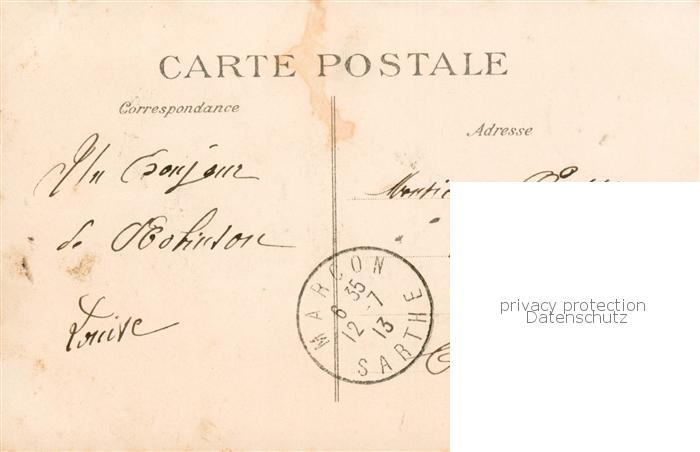 CARTE POSTALE
Correspondance
Adresse
Un bonjour
de Robinson
Louise
MARÇON
8 35
12 -7
13
SARTHE
privacy protection
Datenschutz